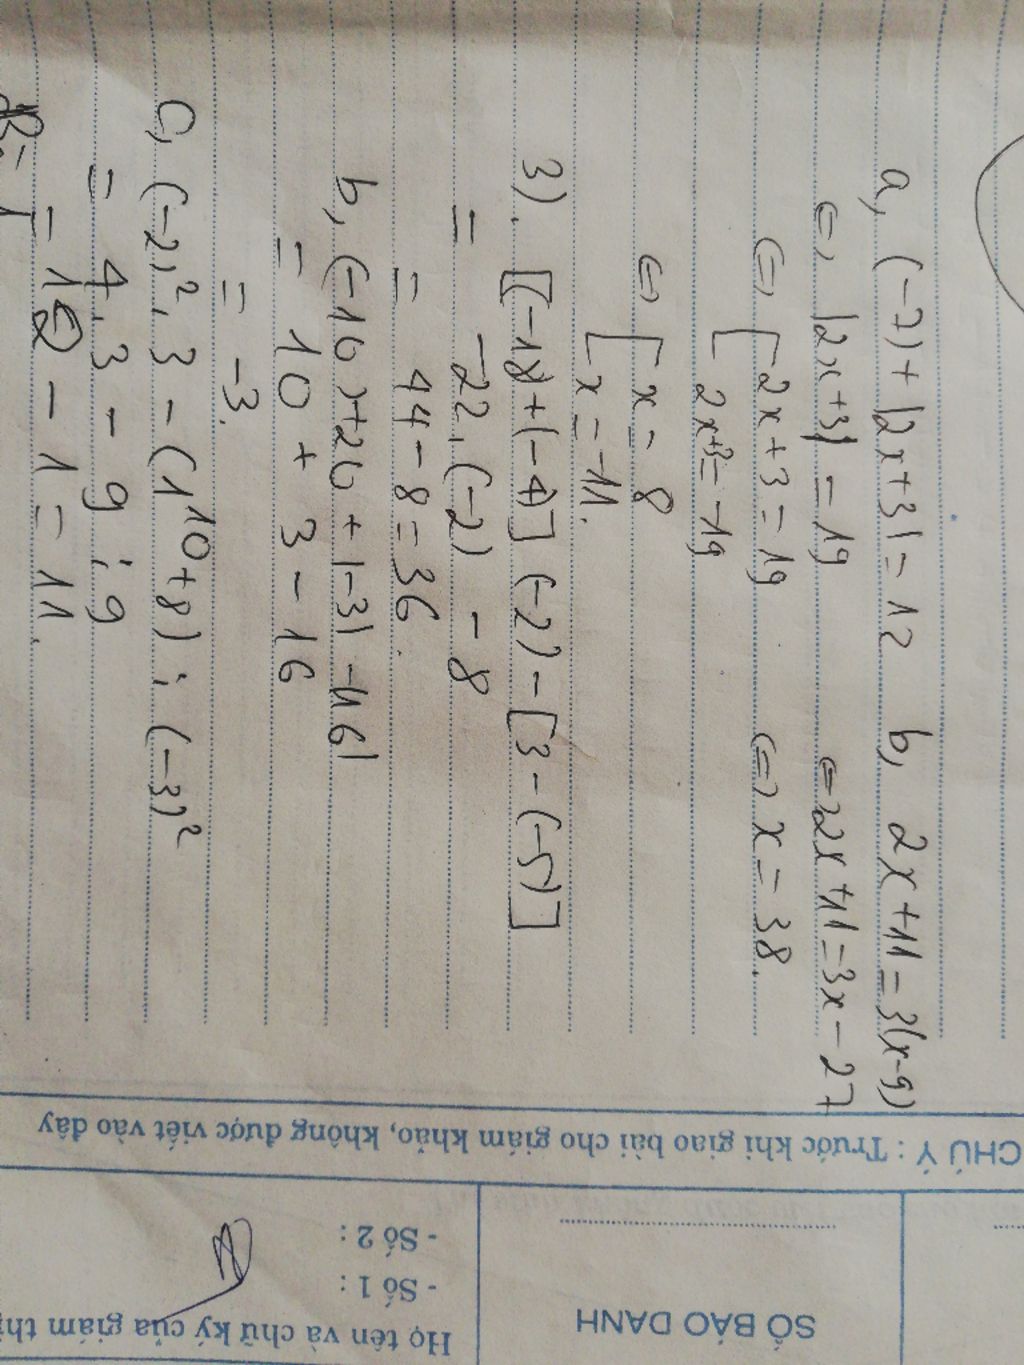 a, (-7) + |2x+3| = 12
⇔ |2x+3| = 19
⇔ [2x+3 = 19
2x+3 = -19
⇔ [x = 8
x = -11.
b, 2x+11 = 3(x-9)
⇔ 2x+11 = 3x-27
⇔ x = 38.
3). [(-18)+(-4)] (-2) - [3-(-5)]
= -22.(-2) - 8
= 44 - 8 = 36.
b, (-16)+26 + |-3| - |16|
= 10 + 3 - 16
= -3.
c, (-2)².3 - (1¹⁰+8) : (-3)²
= 4.3 - 9 : 9
= 12 - 1 = 11.
CHÚ Ý : Trước khi giao bài cho giám khảo, không được viết vào đây
SỐ BÁO DANH
Họ tên và chữ ký của giám thị
- Số 1 :
- Số 2 :